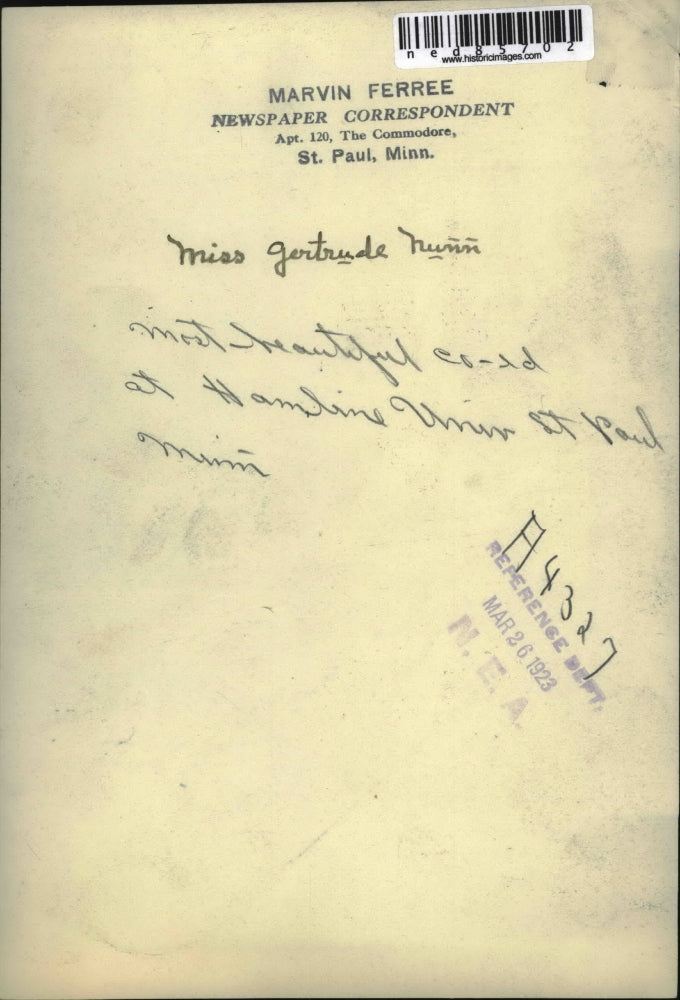 ned85702
www.historicimages.com
MARVIN FERREE
NEWSPAPER CORRESPONDENT
Apt. 120, The Commodore,
St. Paul, Minn.
Miss Gertrude Nunn
most beautiful co-ed
at Hamline Univ St Paul
Minn
A4327
REFERENCE DEPT.
MAR 26 1923
N. E. A.